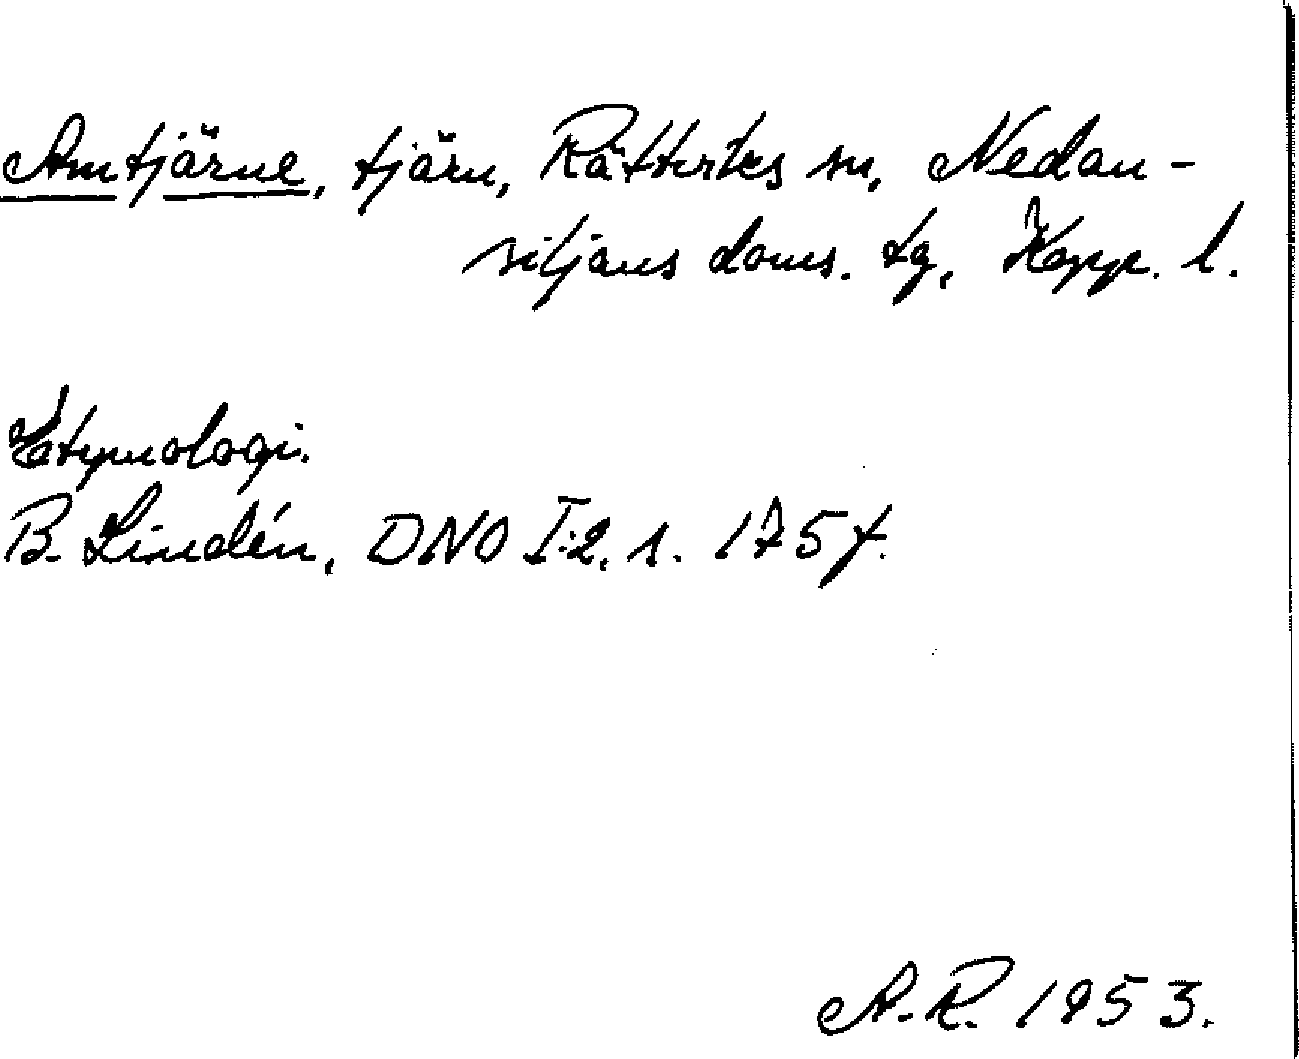 Amtjärne, tjärn, Rättviks sn, Nedan-
siljans doms. tg, Kopp. l.
Etymologi.
B. Lindén, DNO I:2, s. 175 f.
A. R. 1953.